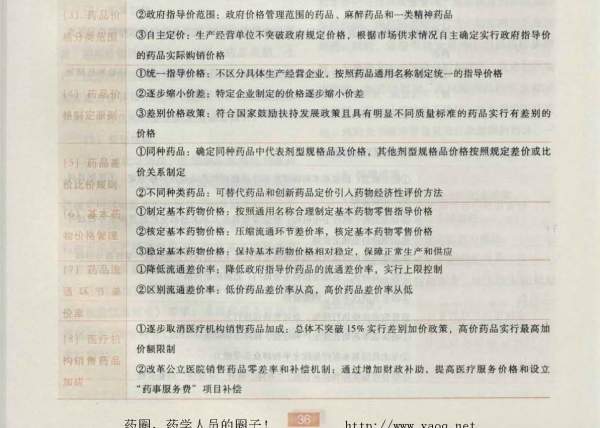 (3) 药品价
格分类范围
②政府指导价范围：政府价格管理范围的药品、麻醉药品和一类精神药品
③自主定价：生产经营单位不突破政府规定价格，根据市场供求情况自主确定实行政府指导价
的药品实际购销价格
(4) 药品价
格制定原则
①统一指导价格：不区分具体生产经营企业，按照药品通用名称制定统一的指导价格
②逐步缩小价差：特定企业制定的价格逐步缩小价差
③差别价格政策：符合国家鼓励扶持发展政策且具有明显不同质量标准的药品实行有差别的
价格
(5) 药品差
价比价规则
①同种药品：确定同种药品中代表剂型规格品及价格，其他剂型规格品价格按照规定差价或比
价关系制定
②不同种类药品：可替代药品和创新药品定价引入药物经济性评价方法
(6) 基本药
物价格管理
①制定基本药物价格：按照通用名称合理制定基本药物零售指导价格
②核定基本药物价格：压缩流通环节差价率，核定基本药物零售价格
③稳定基本药物价格：保持基本药物价格相对稳定，保障正常生产和供应
(7) 药品流
通环节差
价率
①降低流通差价率：降低政府指导价药品的流通差价率，实行上限控制
②区别流通差价率：低价药品差价率从高，高价药品差价率从低
(8) 医疗机
构销售药品
加成
①逐步取消医疗机构销售药品加成：总体不突破15%实行差别加价政策，高价药品实行最高加
价额限制
②改革公立医院销售药品零差率和补偿机制：通过增加财政补助，提高医疗服务价格和设立
“药事服务费”项目补偿
药圈，药学人员的圈子！ 36 http://www.yaoq.net